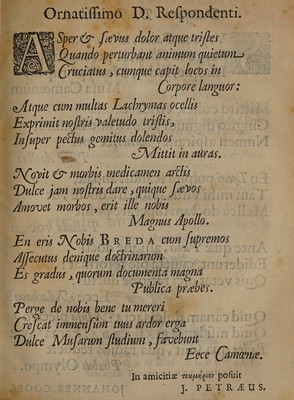 Ornatissimo D. Respondenti.
ASper & sævus dolor atque tristes
Quando perturbant animum quietum
Cruciatus, cumque capit locos in
Corpore languor:
Atque cum multas Lachrymas ocellis
Exprimit nostris valetudo tristis,
Insuper pectus gemitus dolendos
Mittit in auras.
Novit & morbis medicamen arctis
Dulce jam nostris dare, quique sævos
Amovet morbos, erit ille nobis
Magnus Apollo.
En eris Nobis BREDA cum supremos
Assecutus denique doctrinarum
Es gradus, quorum documenta magna
Publica præbes.
Perge de nobis bene tu mereri
Crescat immensùm tuus ardor erga
Dulce Musarum studium, favebunt
Eece Camœnæ.
In amicitiæ posuit
J. PETRÆUS.